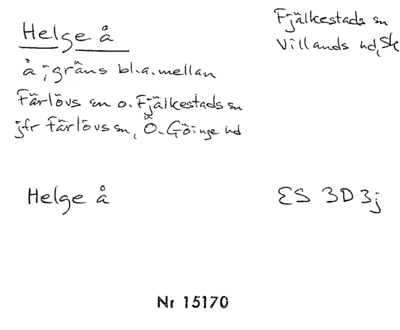 Helge å
Fjälkestads sn
Villands hd, Sk
å; gräns bl.a. mellan
Färlövs sn o. Fjälkestads sn
jfr Färlövs sn, Ö. Göinge hd
Helge å
ES 3D3j
Nr 15170